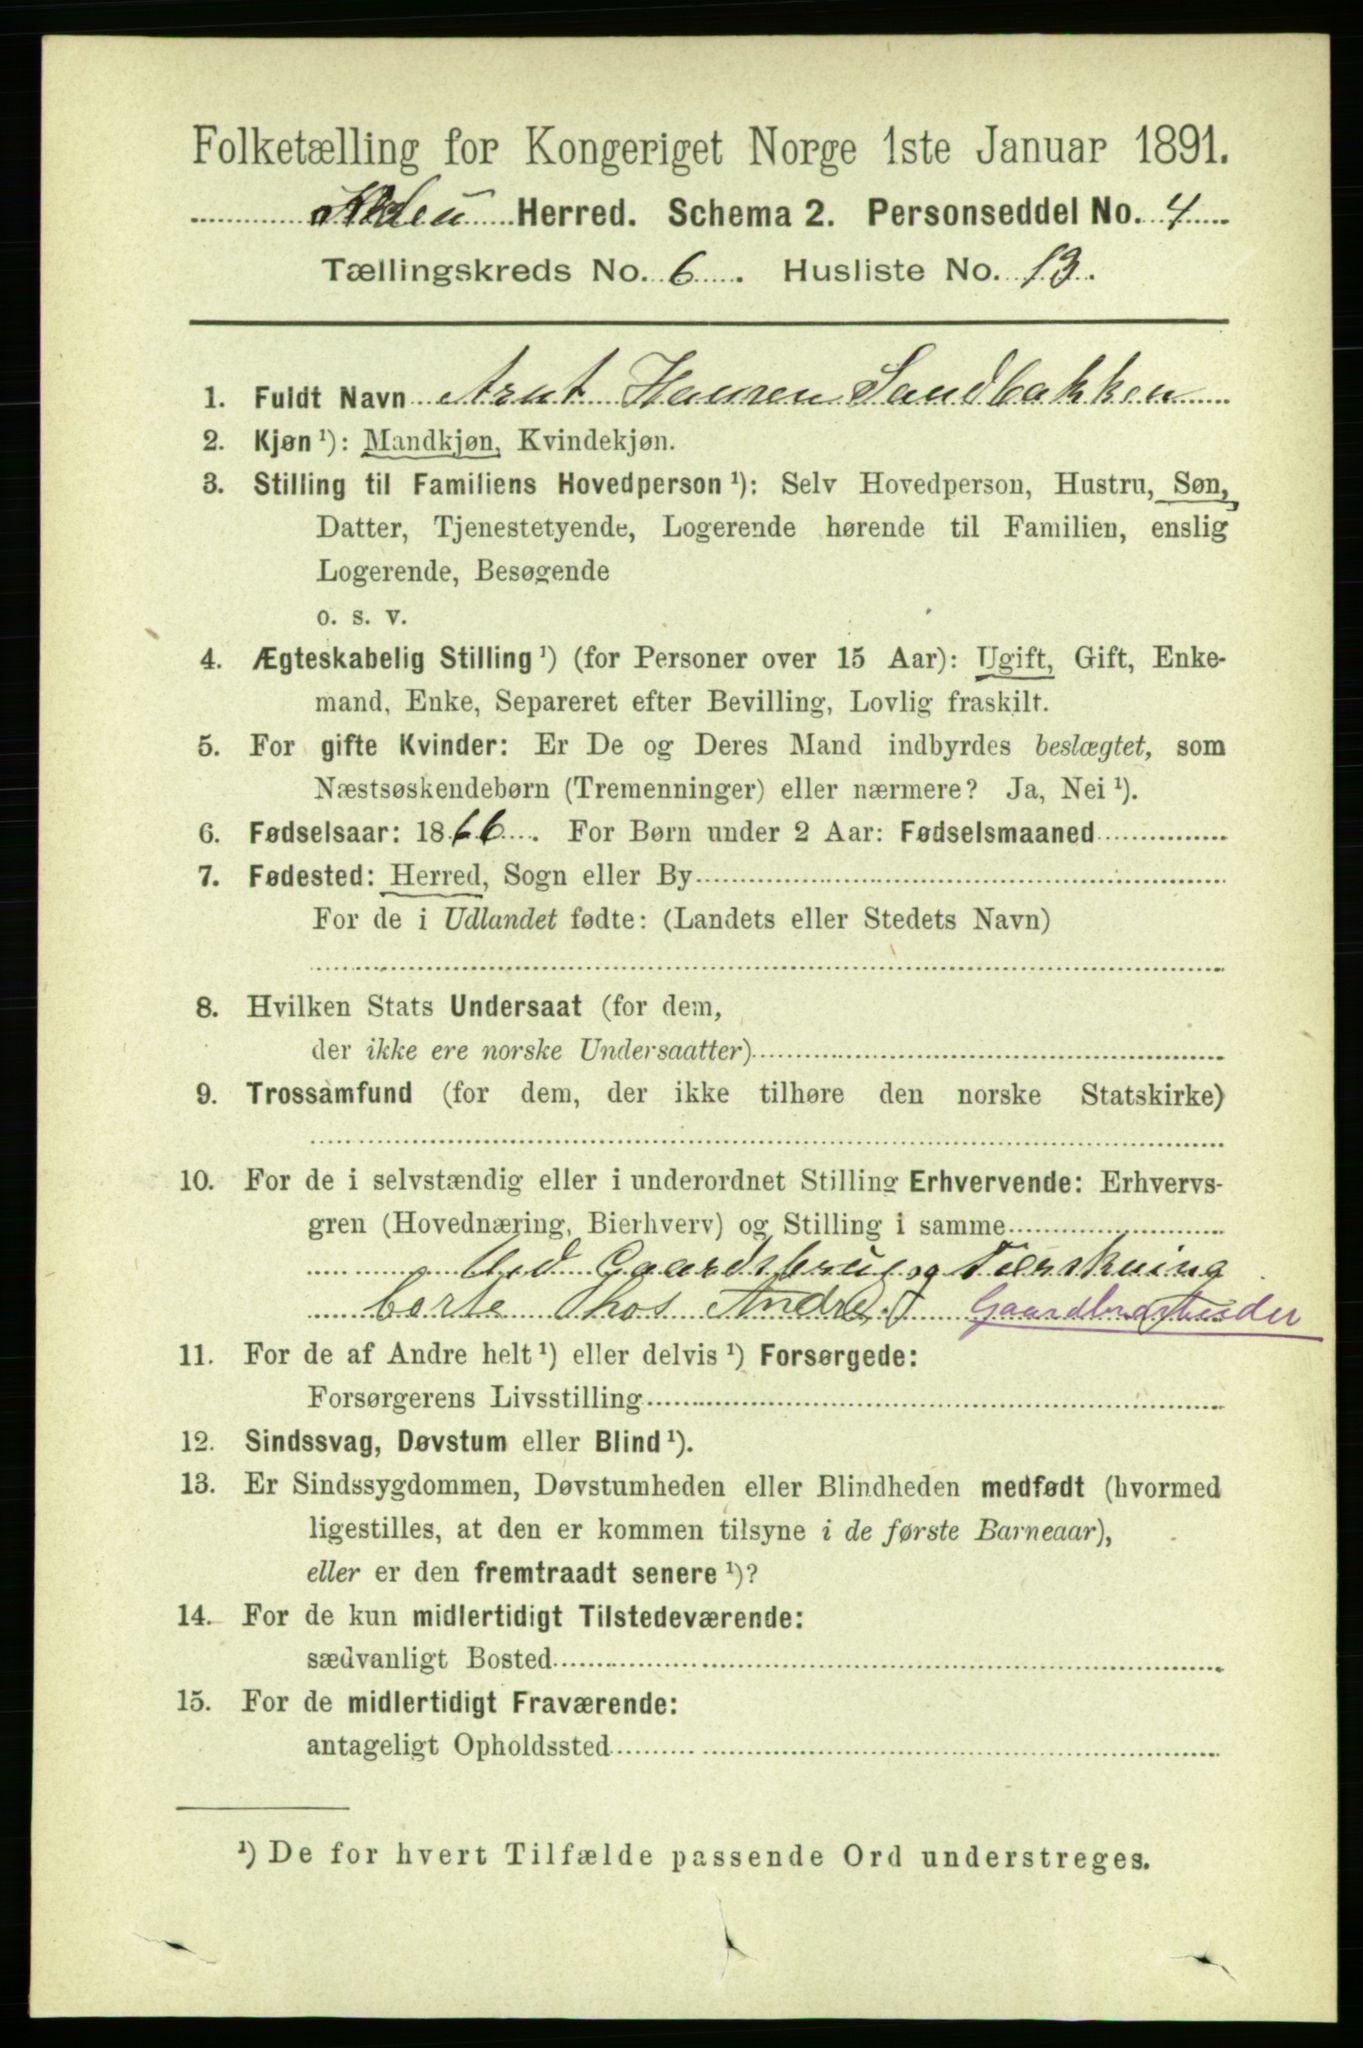 Folketælling for Kongeriget Norge 1ste Januar 1891.
Herred. Schema 2. Personseddel No. 4
Tællingskreds No. 6. Husliste No. 13.
1. Fuldt Navn Arnt Hansen Sandbakken
2. Kjøn ¹): Mandkjøn, Kvindekjøn.
3. Stilling til Familiens Hovedperson ¹): Selv Hovedperson, Hustru, Søn,
Datter, Tjenestetyende, Logerende hørende til Familien, enslig
Logerende, Besøgende
o. s. v.
4. Ægteskabelig Stilling ¹) (for Personer over 15 Aar): Ugift, Gift, Enke-
mand, Enke, Separeret efter Bevilling, Lovlig fraskilt.
5. For gifte Kvinder: Er De og Deres Mand indbyrdes beslægtet, som
Næstsøskendebørn (Tremenninger) eller nærmere? Ja, Nei ¹).
6. Fødselsaar: 1866. For Børn under 2 Aar: Fødselsmaaned
7. Fødested: Herred, Sogn eller By
For de i Udlandet fødte: (Landets eller Stedets Navn)
8. Hvilken Stats Undersaat (for dem,
der ikke ere norske Undersaatter)
9. Trossamfund (for dem, der ikke tilhøre den norske Statskirke)
10. For de i selvstændig eller i underordnet Stilling Erhvervende: Erhvervs-
gren (Hovednæring, Bierhverv) og Stilling i samme
Ved Gaardsbrug og Tærskning
borte hos Andre. Gaardbrarbeider
11. For de af Andre helt ¹) eller delvis ¹) Forsørgede:
Forsørgerens Livsstilling
12. Sindssvag, Døvstum eller Blind ¹).
13. Er Sindssygdommen, Døvstumheden eller Blindheden medfødt (hvormed
ligestilles, at den er kommen tilsyne i de første Barneaar),
eller er den fremtraadt senere ¹)?
14. For de kun midlertidigt Tilstedeværende:
sædvanligt Bosted
15. For de midlertidigt Fraværende:
antageligt Opholdssted
¹) De for hvert Tilfælde passende Ord understreges.